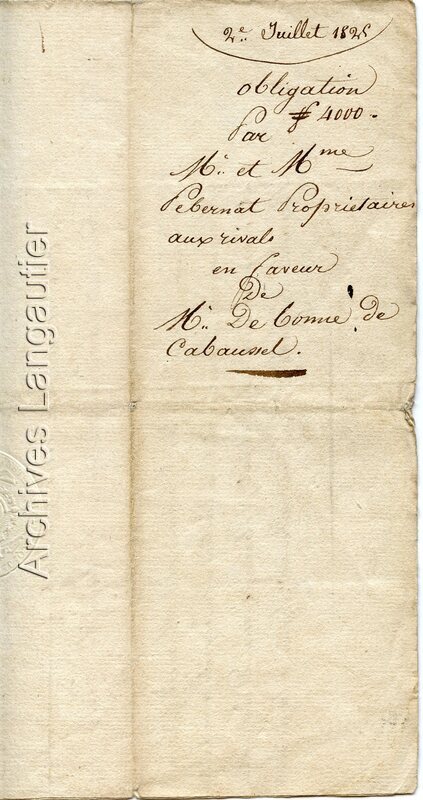 2e. Juillet 1825
obligation
Par ₶ 4000.
Mr. et Mme
Pebernat Proprietaires
aux rivals
en faveur
De
Mr. De bonne de
Cabaussel.
Archives Langautier